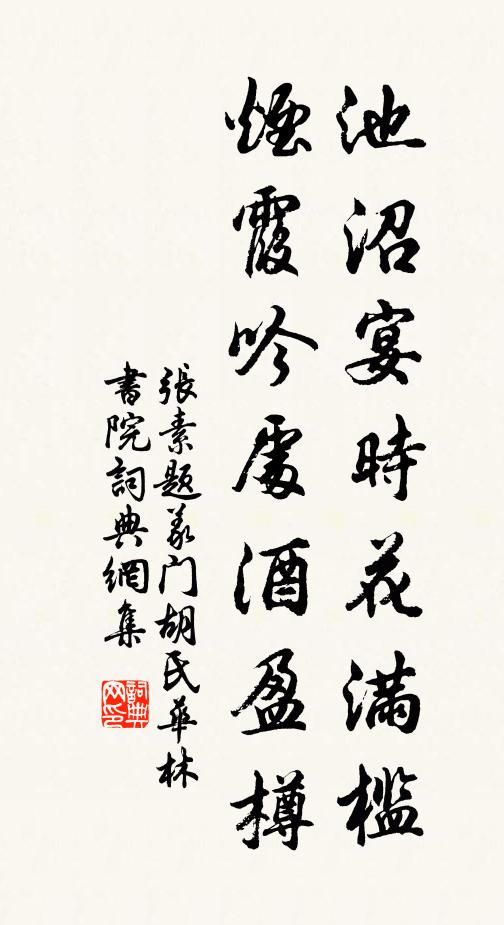 池沼宴時花滿檻
煙霞吟處酒盈樽
張素題義门胡氏華林
書院詞典網集
詞典网印